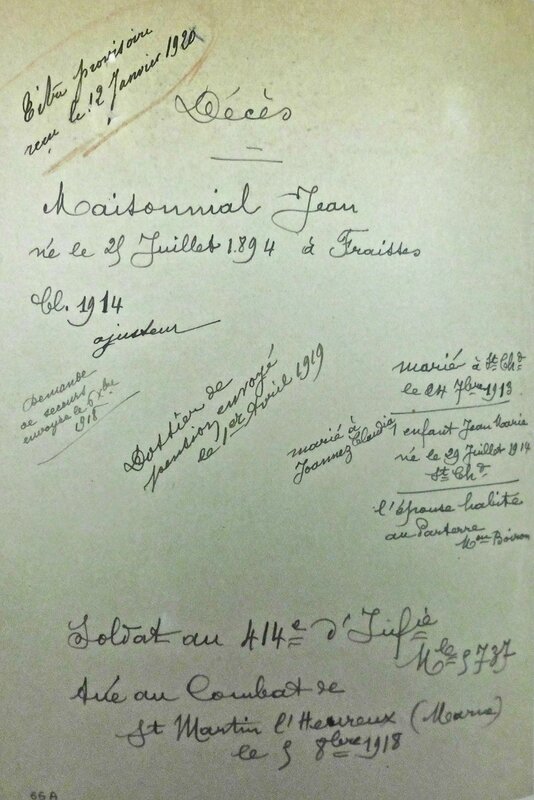 Titre provisoire
reçu le 12 Janvier 1920
Décès
Maisonnial Jean
né le 25 Juillet 1894 à Fraisses
Cl. 1914
ajusteur
Demande
de secours
envoyée le 5 Xbre
1918
Dossier de
pension envoyé
le 1er Avril 1919
marié à
Joannez Claudia
marié à St Chd
le 24 7bre 1913
1 enfant Jean Marie
né le 29 Juillet 1914
St Chd
l'épouse habite
au Parterre
Mon Boiron
Soldat au 414e d'Infie
Mle 5737
Tué au Combat de
St Martin l'Heureux (Marne)
le 5 8bre 1918
66A